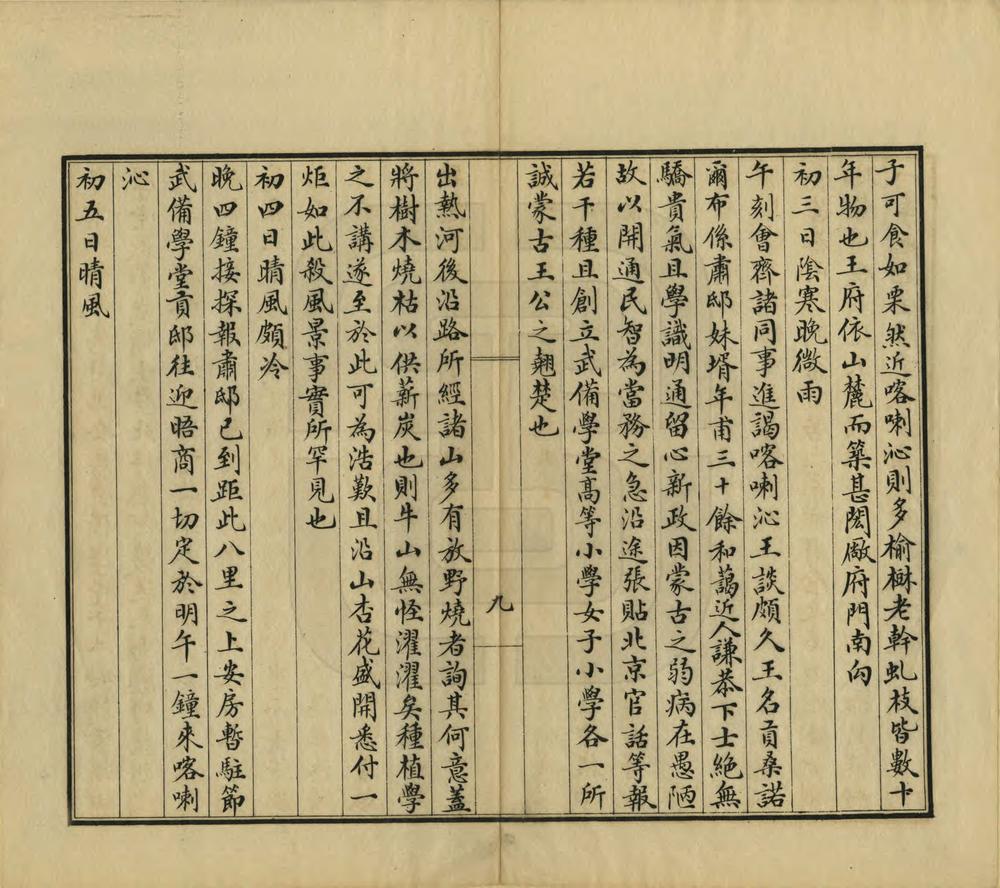 子可食如栗然近喀喇沁則多榆楙老幹虬枝皆數十
年物也王府依山麓而築甚閎厰府門南向
初三日陰寒晚微雨
午刻會齊諸同事進謁喀喇沁王談頗久王名貢桑諾
爾布係肅邸妹壻年甫三十餘和藹近人謙恭下士絕無
驕貴氣且學識明通留心新政因蒙古之弱病在愚陋
故以開通民智為當務之急沿途張貼北京官話等報
若干種且創立武備學堂高等小學女子小學各一所
誠蒙古王公之翹楚也
九
出熱河後沿路所經諸山多有放野燒者詢其何意蓋
將樹木燒枯以供薪炭也則牛山無怪濯濯矣種植學
之不講遂至於此可為浩歎且沿山杏花盛開悉付一
炬如此殺風景事實所罕見也
初四日晴風頗冷
晚四鐘接探報肅邸已到距此八里之上安房暫駐節
武備學堂貢邸往迎晤商一切定於明午一鐘來喀喇
沁
初五日晴風